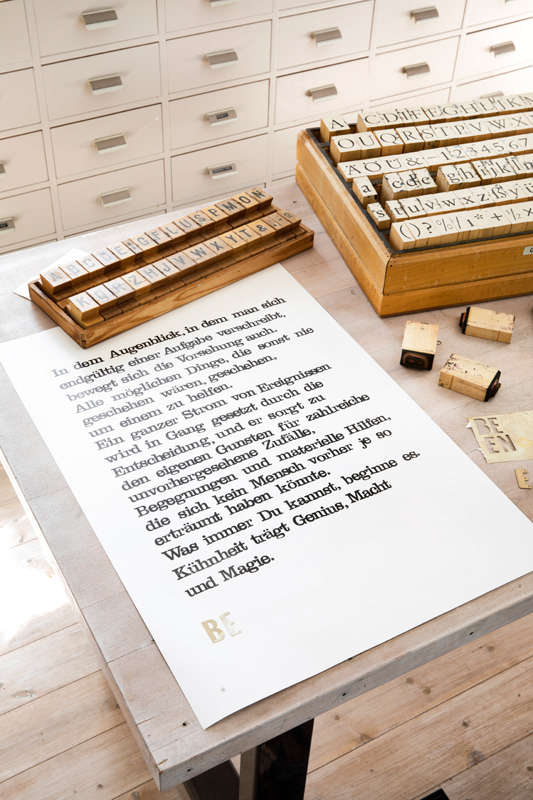 A CDEFGHIJKLM
OUQRSTRVWX
ÄOÜ&-1234567
a cdfe gh
s tuvwxyz
()?%!*+
ABCDEHGFLUSPMON
KURZHJVWXYT&
In dem Augenblick, in dem man sich
endgültig einer Aufgabe verschreibt,
bewegt sich die Vorsehung auch.
Alle möglichen Dinge, die sonst nie
geschehen wären, geschehen,
um einem zu helfen.
Ein ganzer Strom von Ereignissen
wird in Gang gesetzt durch die
Entscheidung, und er sorgt zu
den eigenen Gunsten für zahlreiche
unvorhergesehene Zufälle,
Begegnungen und materielle Hilfen,
die sich kein Mensch vorher je so
erträumt haben könnte.
Was immer Du kannst, beginne es.
Kühnheit trägt Genius, Macht
und Magie.
BE
BE
EN